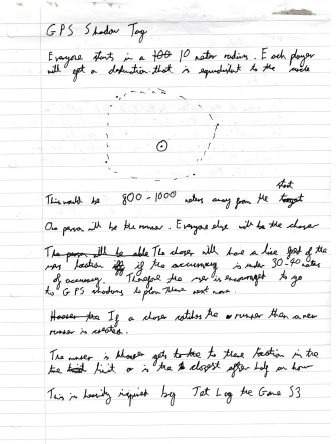 GPS Shadow Tag
Everyone starts in a 100 10 meter radius. Each player
will get a destination that is equidistant to the circle
This would be 800 - 1000 meters away from the target
start
One person will be the runner. Everyone else will be the chaser
The person will be able The chaser will have a live feed of the
location iff if the accuracy is under 30-40 meters
of accuracy. Therefore the is encouraged to go
to GPS shadows to plan there next move.
However the If a chaser catches the runner then a new
runner is created.
The winner is whoever gets to the to there location in the
the limit or is the closest after half an hour
This is heavily inspired by Jet Lag the Game S3